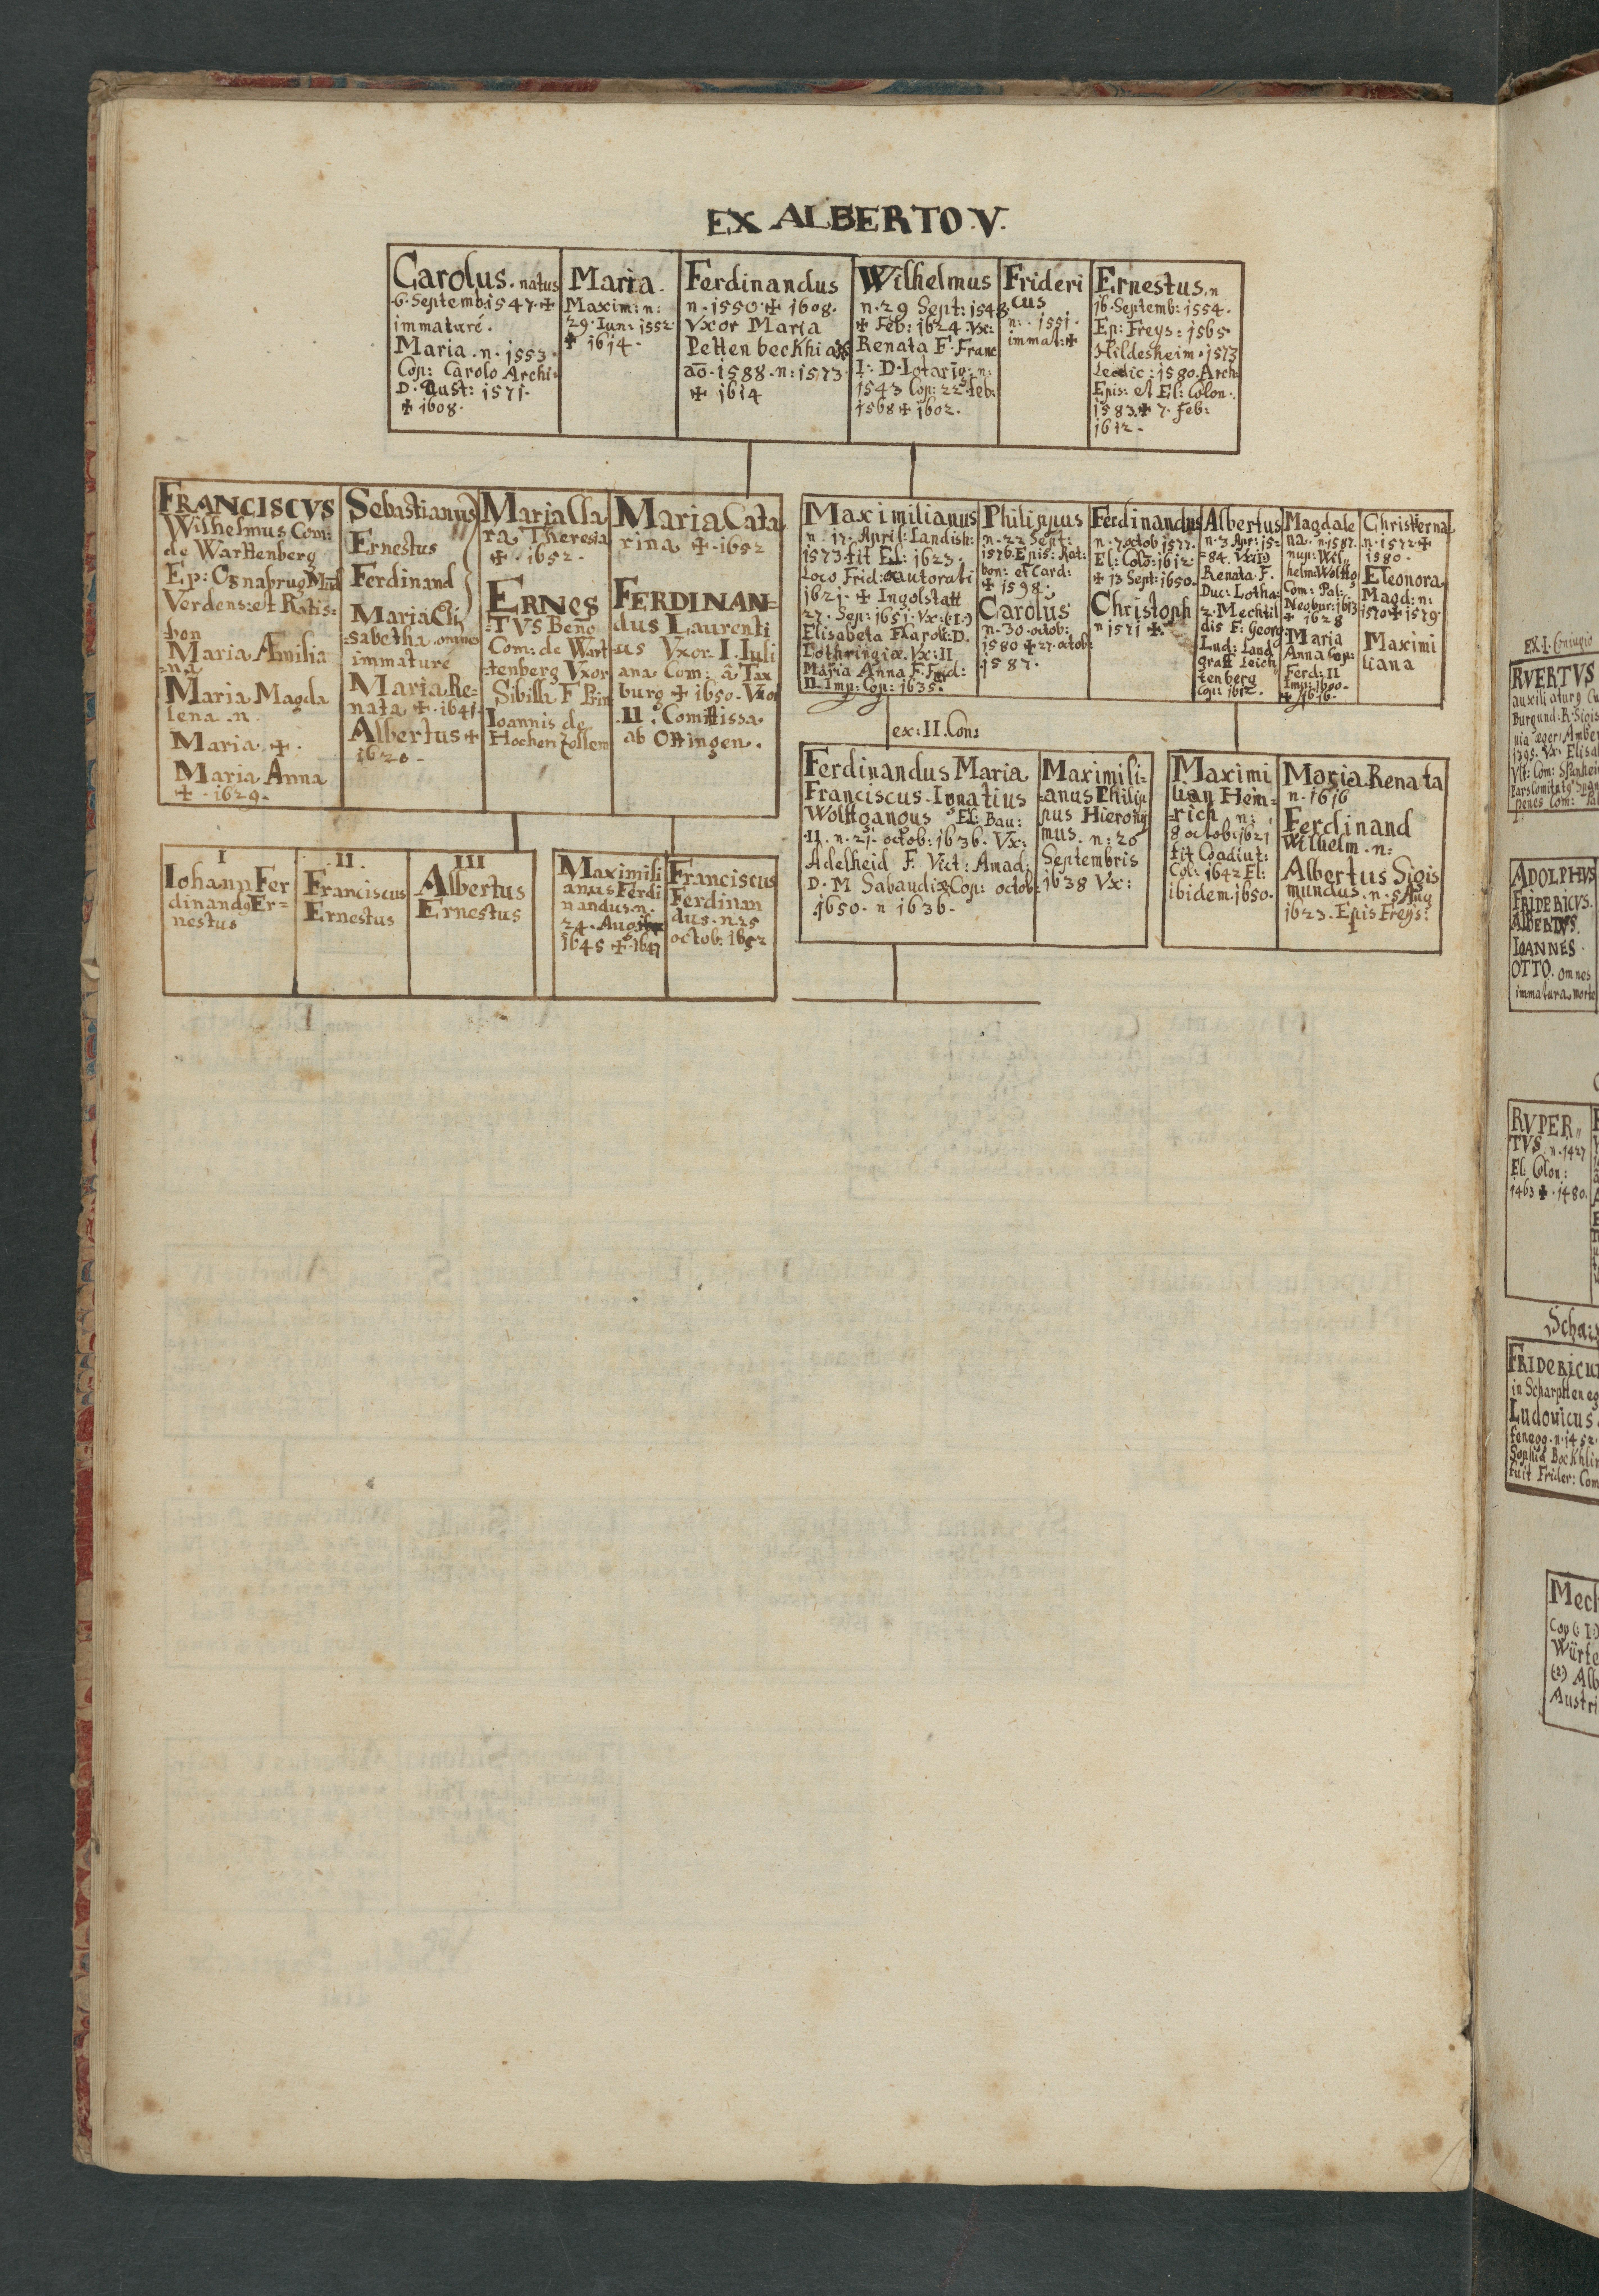 EX ALBERTO.V.
Carolus. natus
6. Septemb: 1547. ✠
immaturé.
Maria. n. 1553.
Cop: Carolo Archi-
D. Aust: 1571.
✠ 1608.
Maria.
Maxim: n:
29. Iun: 1552
✠ 1614.
Ferdinandus
n. 1550. ✠ 1608.
Vxor Maria
Pettenbeckhi
ao. 1588. n: 1573.
✠ 1614
Wilhelmus
n. 29 Sept: 1548
✠ Feb: 1624. Vx:
Renata F. Franc
I: D. Lotarig. n:
1543 Cop: 22. feb:
1568 ✠ 1602.
Frideri
cus
n: 1551.
immat: ✠
Ernestus. n
16. Septemb: 1554.
Ep: Freys: 1565.
Hildesheim. 1573
Leodic: 1580. Arch:
Epis: et El: Colon:
1583. ✠ 7. feb:
1612.
FRANCISCVS
Wilhelmus Com:
de Warttenberg
Ep: Osnabrug Mind
Verdens: et Ratis:
bon
Maria Æmilia
n.
Maria Magda
lena. n.
Maria. ✠.
Maria Anna
✠. 1629.
Sebastianus
Ernestus
Ferdinand
Maria Eli
sabetha. omnes
immaturé
Maria Re=
nata ✠. 1641.
Albertus ✠
1620.
Maria Cla
ra Theresia
✠. 1652.
ERNES
TVS Beno
Com: de Wart
tenberg Vxor
Sibilla F. Prin
Ioannis de
Hochenzollern
Maria Cata
rina ✠. 1652
FERDINAN=
dus Laurenti
us Vxor I. Iuli
ana Com: à Tax
burg ✠ 1650. Vxor
.II. Comitissa
ab Ottingen.
Maximilianus
n. 17. April: Landish:
1573 fit El: 1623.
Loco Frid: exautorati
1621. ✠ Ingolstatt
27. Sep: 1651. Vx: (I.)
Elisabeta F. Caroli. D.
Lothringiæ. Vx: II
Maria Anna F. Ferd:
II. Imp: Cop: 1635.
Philippus
n. 22 Sept:
1576. Epis: Rat:
bon: et Card:
✠ 1598.
Carolus
n. 30. octob:
1580 ✠ 27. octob:
1587.
Ferdinandus
n. 7 octob 1577.
El: Colo: 1612
✠ 13 Sept: 1650.
Christoph
n 1571 ✠.
Albertus
n. 3 Apr: 15=
=84. Vx: (I)
Renata. F.
Duc: Lotha:
2. Mechtil
dis F: Georg
Lud: Land
graff Leich
tenberg
Cop: 1612.
Magdale
na. n. 1587.
nup: Wil
helm: Wolffg
Com: Pal:
Neobur: 1613
✠ 1628
Maria
Anna Cop:
Ferd: II
Imp: 1600.
✠ 1616.
Christierna
n. 1572. ✠
1580.
Eleonora
Magd: n:
1570 ✠ 1579.
Maximi
liana
ex: II. Con:
Ferdinandus Maria
Franciscus. Ignatius
Wolffgangus El: Bau:
.II. n. 21. octob: 1636. Vx:
Adelheid F. Vict: Amad:
D. M Sabaudiæ Cop: octob:
.1650. n 1636.
Maximili:
=anus Philip
pus Hierony
mus. n: 20
Septembris
1638 Vx:
Maximi
lian Hein=
rich n:
8 octob: 1621
fit Coadiut:
Col: 1642 El:
ibidem. 1650.
Maria. Renata
n. 1616
Ferdinand
Wilhelm. n:
Albertus Sigis
mundus. n. 5 Aug
1623. Epis Freys:
I
Iohann Fer
dinandg Er=
nestus
II.
Franciscus
Ernestus
III
Albertus
Ernestus
Maximili
anus Ferdi
nandus. n.
24. Augs
1645 ✠. 1647
Franciscus
Ferdinan
dus. n. 25
octob: 1652
EX. I. Coniugio
RVERTVS
ADOLPHVS
FRIDERICVS.
ALBERTVS.
IOANNES.
OTTO. omnes
immatura morte
RVPER
TVS. n. 1427
El: Colon:
1463 ✠. 1480.
FRIDERICU
Ludouicus
Mech
Würte
(2) Alb
Austri